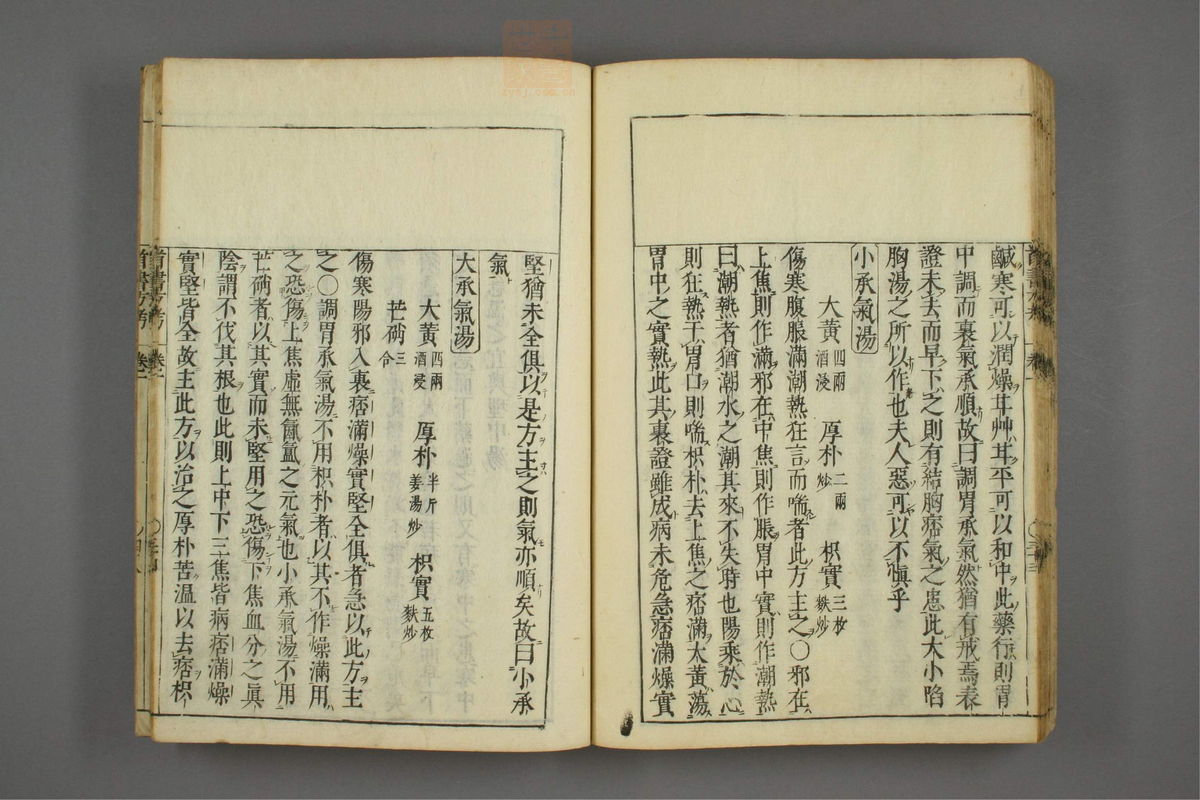 鹹寒可以潤燥甘艸甘平可以和中此藥行則胃
中調而裏氣承順故曰調胃承氣然猶有戒焉表
證未去而早下之則有結胸痞氣之患此大小陷
胸湯之所以作也夫人惡可以不慎乎
小承氣湯
大黃四兩酒浸 厚朴二兩炒 枳實三枚麩炒
傷寒腹脹滿潮熱狂言而喘者此方主之○邪在
上焦則作滿邪在中焦則作脹胃中實則作潮熱
曰潮熱者猶潮水之潮其來不失時也陽乘於心
則狂熱干胃口則喘枳朴去上焦之痞滿大黃蕩
胃中之實熱此其裏證雖成病未危急痞滿燥實
堅猶未全俱以是方主之則氣亦順矣故曰小承
氣
大承氣湯
大黃四兩酒浸 厚朴半斤姜湯炒 枳實五枚麩炒
芒硝三合
傷寒陽邪入裏痞滿燥實堅全俱者急以此方主
之○調胃承氣湯不用枳朴者以其不作燥滿用
之恐傷上焦虛無氤氳之元氣也小承氣湯不用
芒硝者以其實而未堅用之恐傷下焦血分之眞
陰謂不伐其根也此則上中下三焦皆病痞滿燥
實堅皆全故主此方以治之厚朴苦溫以去痞枳